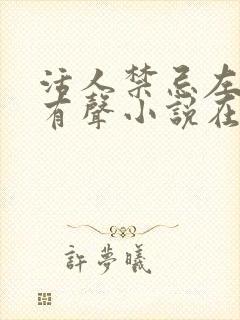 活人禁忌左
有聲小說在
許夢曦